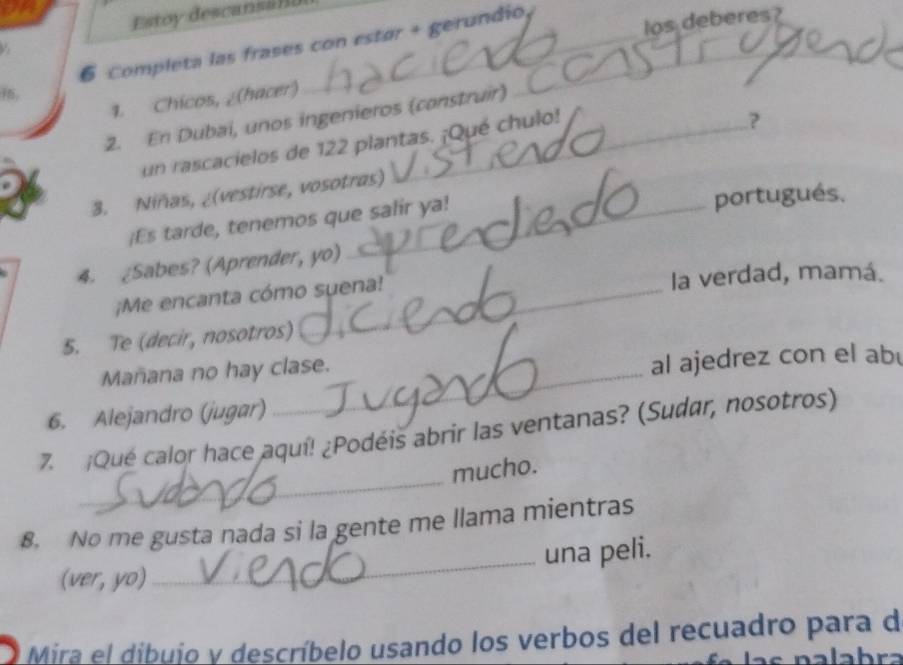 Estoy
6 Completa las frases con estar + gerundio.
1. Chicos, ¿(hacer) haciendo los deberes?
2. En Dubai, unos ingenieros (construir) construyendo
un rascacielos de 122 plantas. ¡Qué chulo!
3. Niñas, ¿(vestirse, vosotras) vistiendo ?
¡Es tarde, tenemos que salir ya!
4. ¿Sabes? (Aprender, yo) aprendiendo portugués.
¡Me encanta cómo suena!
5. Te (decir, nosotros) diciendo la verdad, mamá.
Mañana no hay clase.
6. Alejandro (jugar) Jugando al ajedrez con el
7. ¡Qué calor hace aquí! ¿Podéis abrir las ventanas? (Sudar, nosotros)
Sudando mucho.
8. No me gusta nada si la gente me llama mientras
(ver, yo) Viendo una peli.
Mira el dibujo y descríbelo usando los verbos del recuadro para